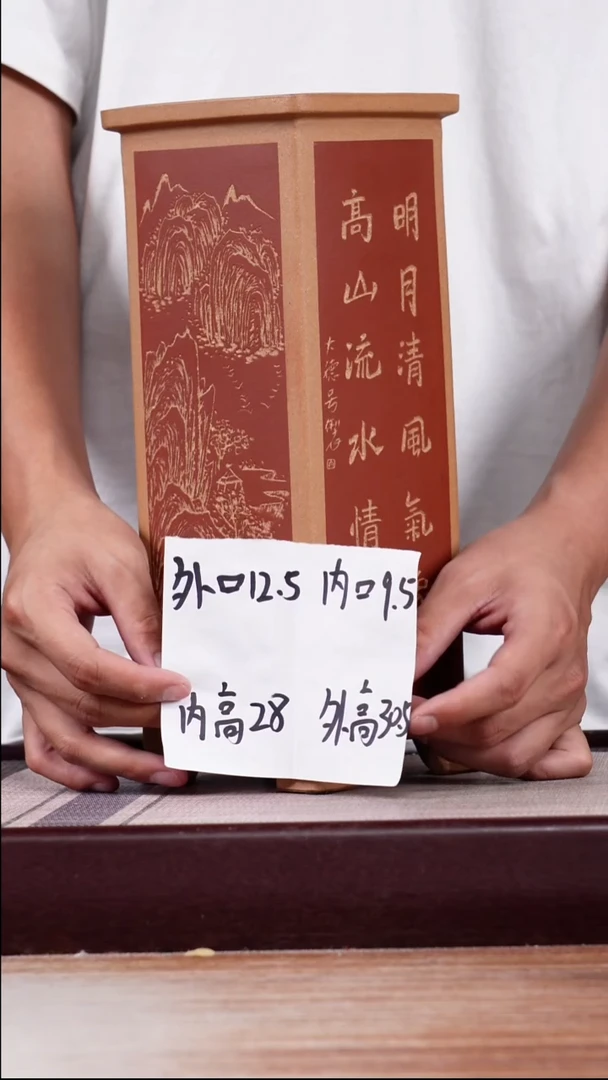 明月清風氣
高山流水情
大德号
外口12.5 内口9.5
内高28 外高30.5